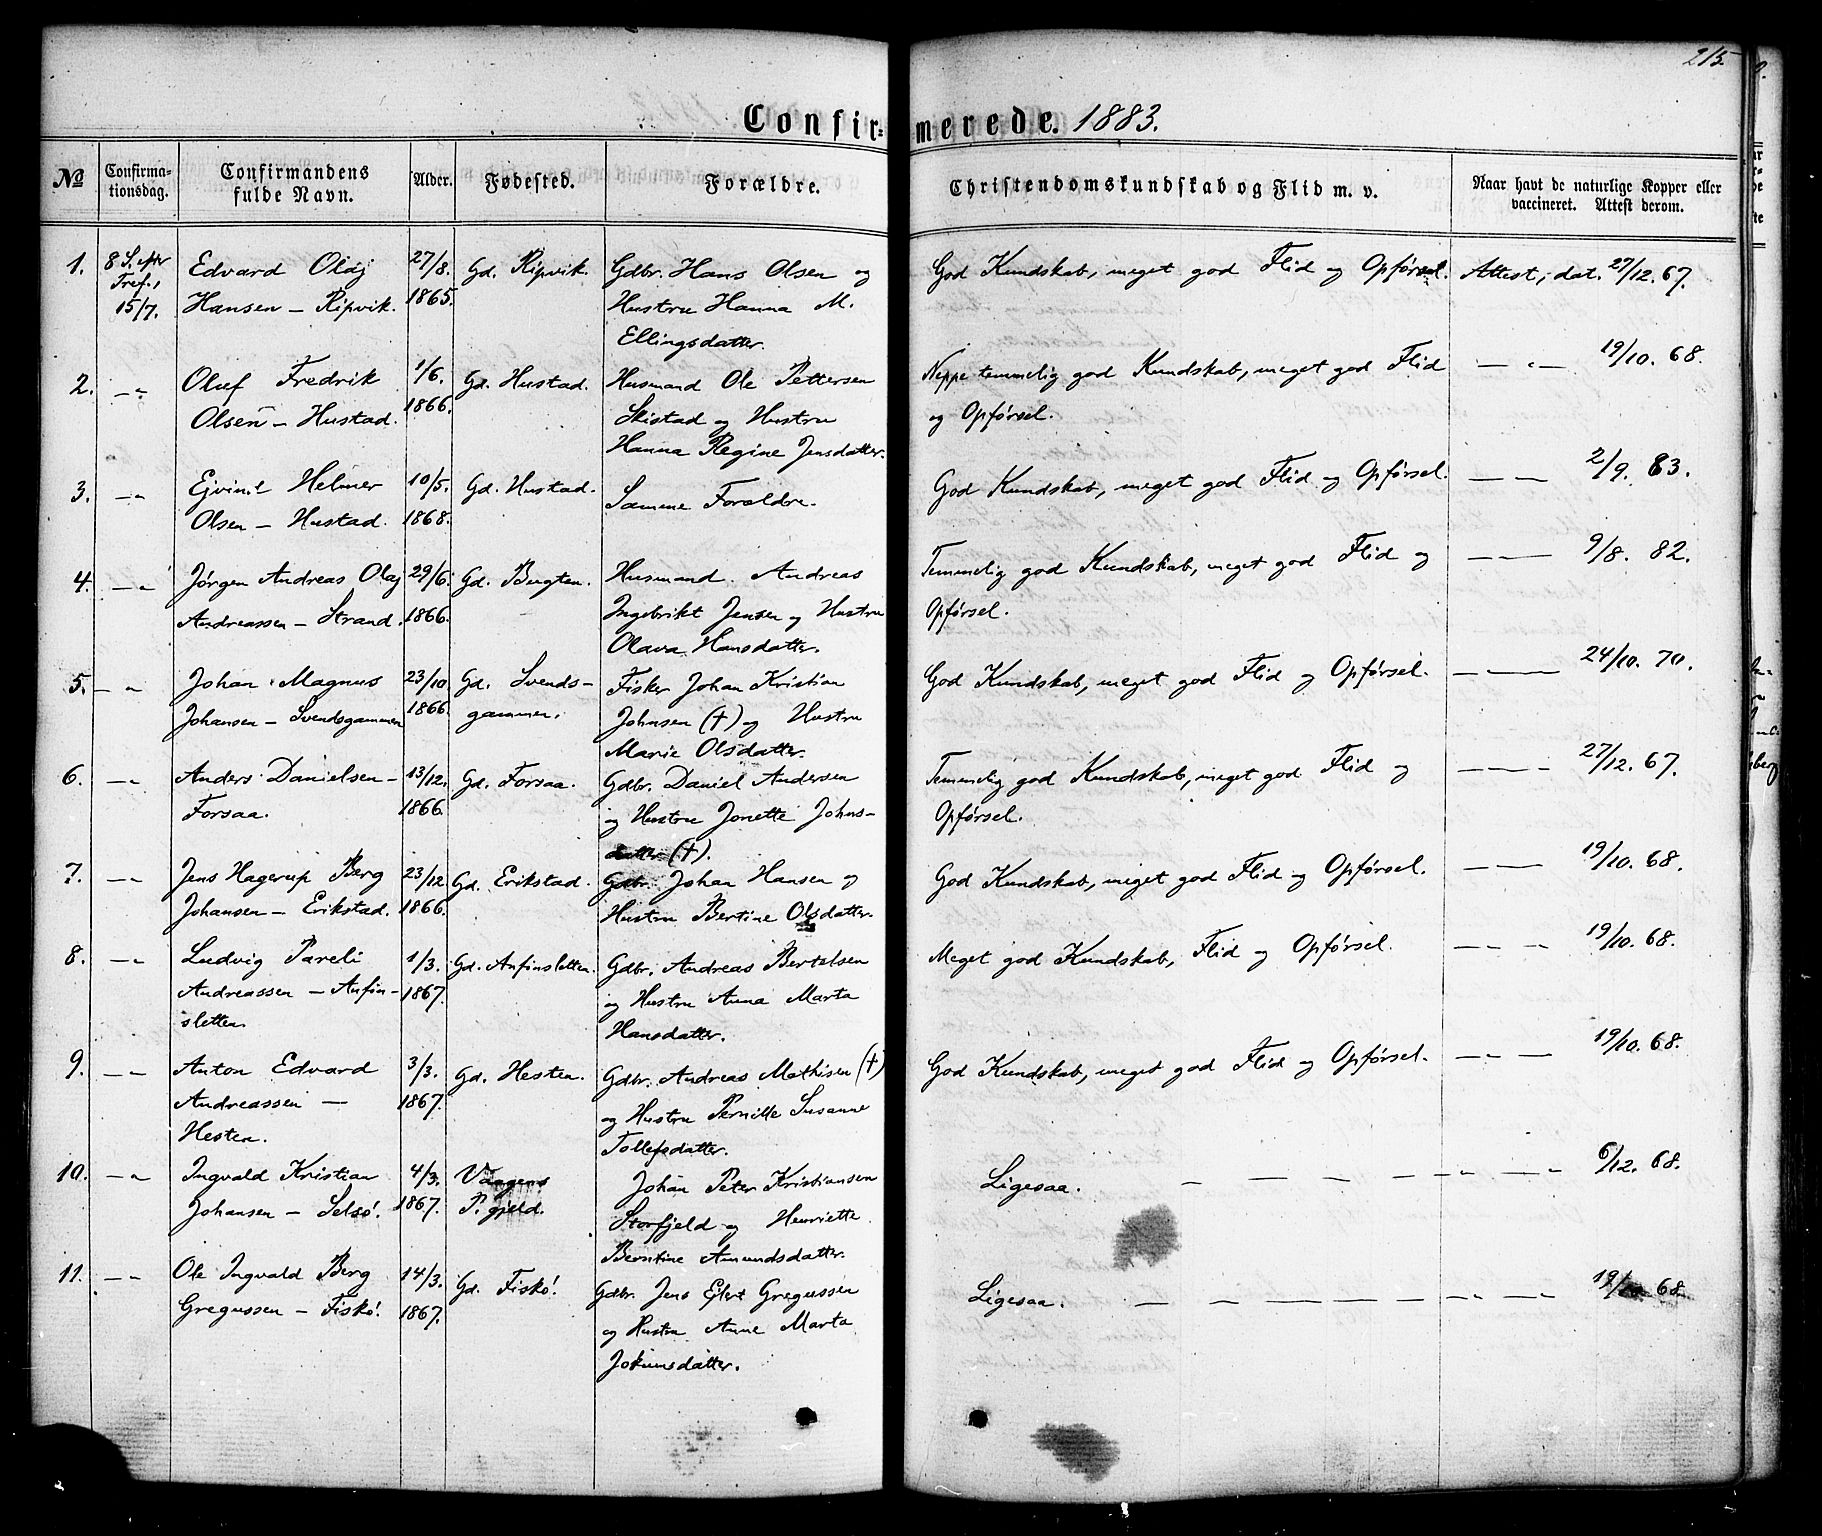 215.
Confirmerede. 1883.
No
Confirmationsdag.
Confirmandens fulde Navn.
Alder.
Fødested.
Forældre.
Christendomskundskab og Flid m. v.
Naar havt de naturlige Kopper eller vaccineret. Attest derom.
1. 8 S. efter Edvard Olaj 27/8. Gd. Ripvik. Gdbr. Hans Olsen og God Kundskab, meget god Flid og Opførsel. Attest, dat. 27/12. 67.
Tref., 15/7. Hansen – Ripvik. 1865. Hustru Hanna M.
Ellingsdatter.
2. — „ Oluf Fredrik 1/6. Gd. Hustad. Husmand Ole Pettersen Neppe temmelig god Kundskab, meget god Flid — „ — 19/10. 68.
Olsen – Hustad. 1866. Skistad og Hustru og Opførsel.
Hanna Regine Jensdatter.
3. — „ Ejvind Helmer 10/5. Gd. Hustad. Samme Forældre. God Kundskab, meget god Flid og Opførsel. — „ — 2/9. 83.
Olsen – Hustad. 1868.
4. — „ Jørgen Andreas Olaj 29/6. Gd. Bugten. Husmand Andreas Temmelig god Kundskab, meget god Flid og — „ — 9/8. 82.
Andreassen – Strand. 1866. Ingebrikt Jensen og Hustru Opførsel.
Olava Hansdatter.
5. — „ Johan Magnus 23/10 Gd. Svends- Fisker Johan Kristian God Kundskab, meget god Flid og Opførsel. — „ — 24/10. 70.
Johansen – Svendsgammen 1866. gammen. Johnsen (†) og Hustru
Marie Olsdatter.
6. — „ Anders Danielsen – 13/12. Gd. Forsaa. Gdbr. Daniel Andersen Temmelig god Kundskab, meget god Flid og — „ — 27/12. 67.
Forsaa. 1866. og Hustru Jonette Johns- Opførsel.
datter (†).
7. — „ Jens Hagerup Berg 23/12 Gd. Erikstad. Gdbr. Johan Hansen og God Kundskab, meget god Flid og Opførsel. — „ — 19/10. 68.
Johansen – Erikstad. 1866. Hustru Bertine Olsdatter.
8. — „ Ludvig Pareli 1/3. Gd. Anfinsletten. Gdbr. Andreas Bertelsen Meget god Kundskab, Flid og Opførsel. — „ — 19/10. 68.
Andreassen – Anfin- 1867. og Hustru Anna Marta
sletten. Hansdatter.
9. — „ Anton Edvard 3/3. Gd. Hesten. Gdbr. Andreas Mathisen (†) God Kundskab, meget god Flid og Opførsel. — „ — 19/10. 68.
Andreassen — 1867. og Hustru Pernille Susanne
Hesten. Tollefsdatter.
10. — „ Ingvald Kristian 4/3. Vaagens Johan Peter Kristiansen Ligesaa. — — — — — „ — „ 6/12. 68.
Johansen – Selsø. 1867. P. gjeld. Storfjeld og Henriette
Berntine Amundsdatter.
11. — „ Ole Ingvald Berg 14/3. Gd. Fiskø. Gdbr. Jens Ejlert Gregussen Ligesaa. — — — — — „ — „ 19/10 68.
Gregussen – Fiskø. 1867. og Hustru Anne Marta
Jokumsdatter.